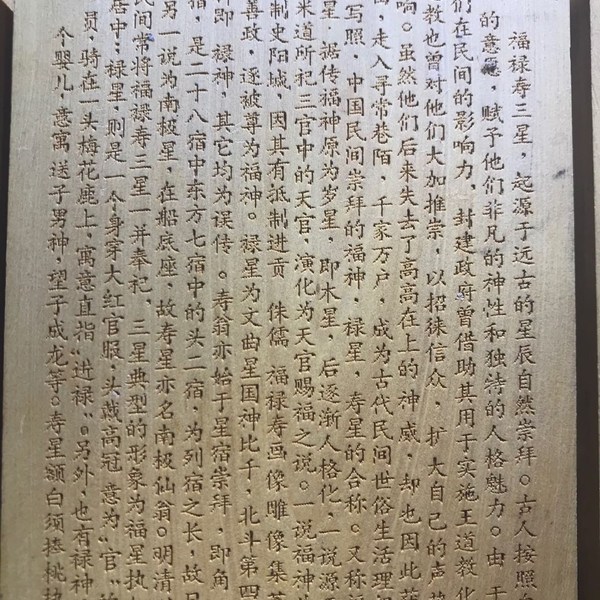 福禄寿三星，起源于远古的星辰自然崇拜。古人按照
的意愿，赋予他们非凡的神性和独特的人格魅力。由于
们在民间的影响力，封建政府曾借助其用于实施王道教化
教也曾对他们大加推崇，以招徕信众，扩大自己的声
响。虽然他们后来失去了高高在上的神威，却也因此
走入寻常巷陌，千家万户，成为古代民间世俗生活理
写照，中国民间崇拜的福神，禄星，寿星的合称。又称
星，据传福神原为岁星，即木星，后逐渐人格化，一说源
米道所祀三官中的天官，演化为天官赐福之说。一说福神
制史阳城，因其有抵制进贡 侏儒 福禄寿画像雕像集
善政，逐被尊为福神。禄星为文曲星国神比干，北斗第四
即禄神，其它均为误传。寿翁亦始于星宿崇拜，即角
宿，是二十八宿中东方七宿中的头二宿，为列宿之长，故
另一说为南极星，在船底座，故寿星亦名南极仙翁。明清
民间常将福禄寿三星一并奉祀，三星典型的形象为福星执
居中；禄星则是一个身穿大红官服，头戴高冠 意为“官”
员，骑在一头梅花鹿上，寓意直指“进禄”。另外，也有禄神
个婴儿，意寓送子男神，望子成龙等。寿星额白须捧桃